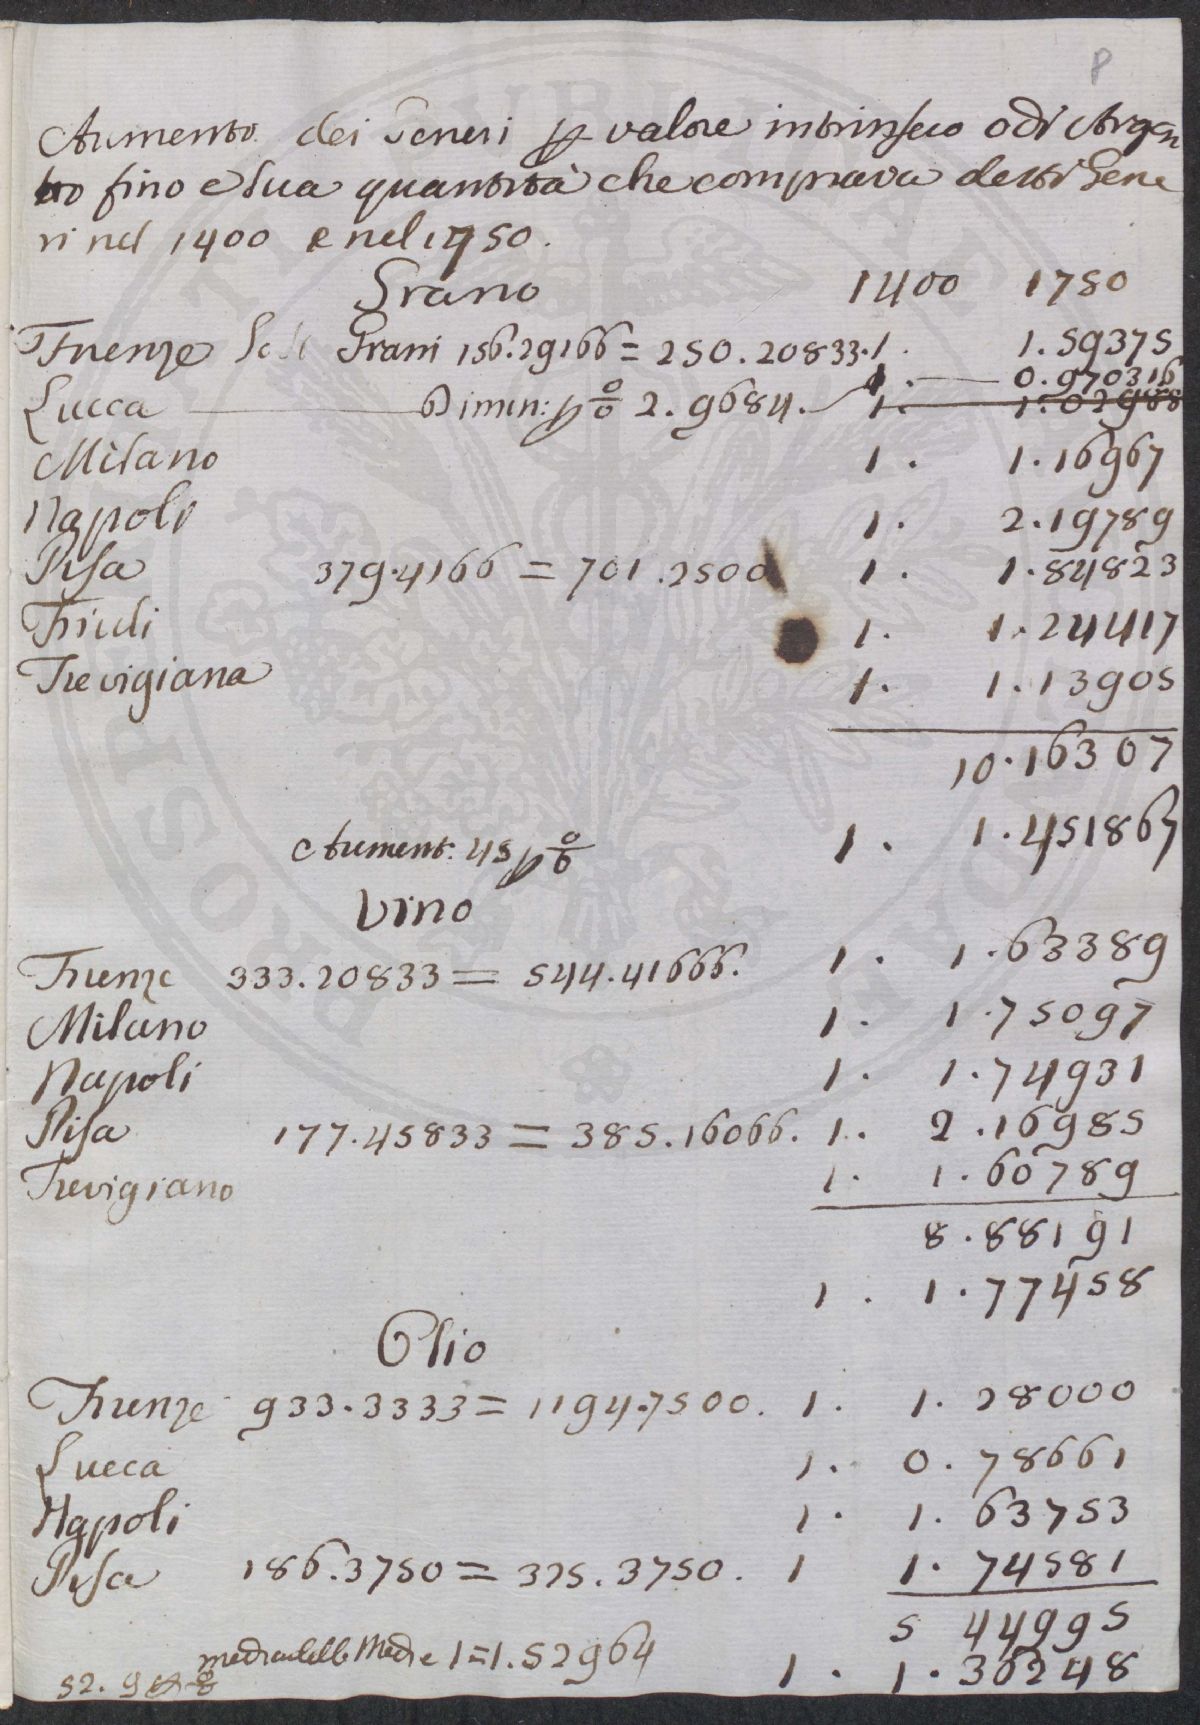 P
Aumento dei Generi p valore intrinseco o di Argen
to fino e sua quantità che comprava detti Gene
ri nel 1400 e nel 1750.
Grano 1400 1750
Firenze Grani 156.29166 = 250.20833. 1. 1.59375
1. 0.970316
Lucca Dimin: p o/o 2.9684. 1. 1.02988
Milano 1. 1.16967
Napoli 1. 2.19789
Pisa 379.4166 = 701.2500 1. 1.84823
Friuli 1. 1.24417
Trevigiana 1. 1.13905
10.16307
Aument: 45 p o/o 1. 1.451867
Vino
Firenze 333.20833 = 544.41666. 1. 1.63389
Milano 1. 1.75097
Napoli 1. 1.74931
Pisa 177.45833 = 385.16066. 1. 2.16985
Trevigiano 1. 1.60789
8.88191
1. 1.77458
Olio
Firenze 933.3333 = 1194.7500. 1. 1.28000
Lucca 1. 0.78661
Napoli 1. 1.63753
Pisa 186.3750 = 325.3750. 1 1.74581
5 44995
media delle Medie 1=1.52964
52.9 p o/o 1. 1.36248
PUBLICAE
PROSPERITATI